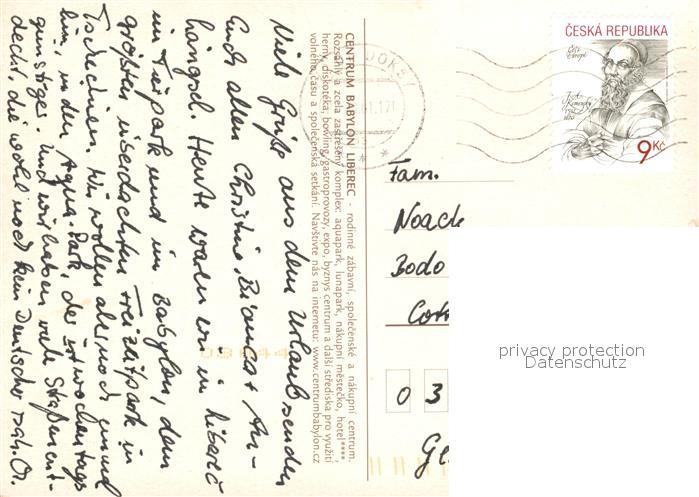 Viele Grüße aus dem Urlaub senden
Euch allen Christine, Bianca + An-
hängsel. Heute waren wir in Liberec
im Tierpark und im Babylon, dem
größten überdachten Freizeitpark in
Tschechien. Wir wollen all noch mal
hin, in den Aqua-Park, der ist wochentags
günstiger. Und wir haben viele Straßen ent-
deckt, die wohl noch kein Deutscher sah.
CENTRUM BABYLON LIBEREC - rodinné zábavní, společenské a nákupní centrum.
Rozsáhlý a zcela zastřešený komplex: aquapark, lunapark, nákupní městečko, hotel****,
herny, diskotéka, bowling, gastroprovozy, expo, byznys centrum a další střediska pro využití
volného času a společenská setkání. Navštivte nás na internetu: www.centrumbabylon.cz
ČESKÁ REPUBLIKA
J. A.
Komenský
1592
1670
9 Kč
Fam.
Noack
Bodo
Cott
0 3
Ge
privacy protection
Datenschutz